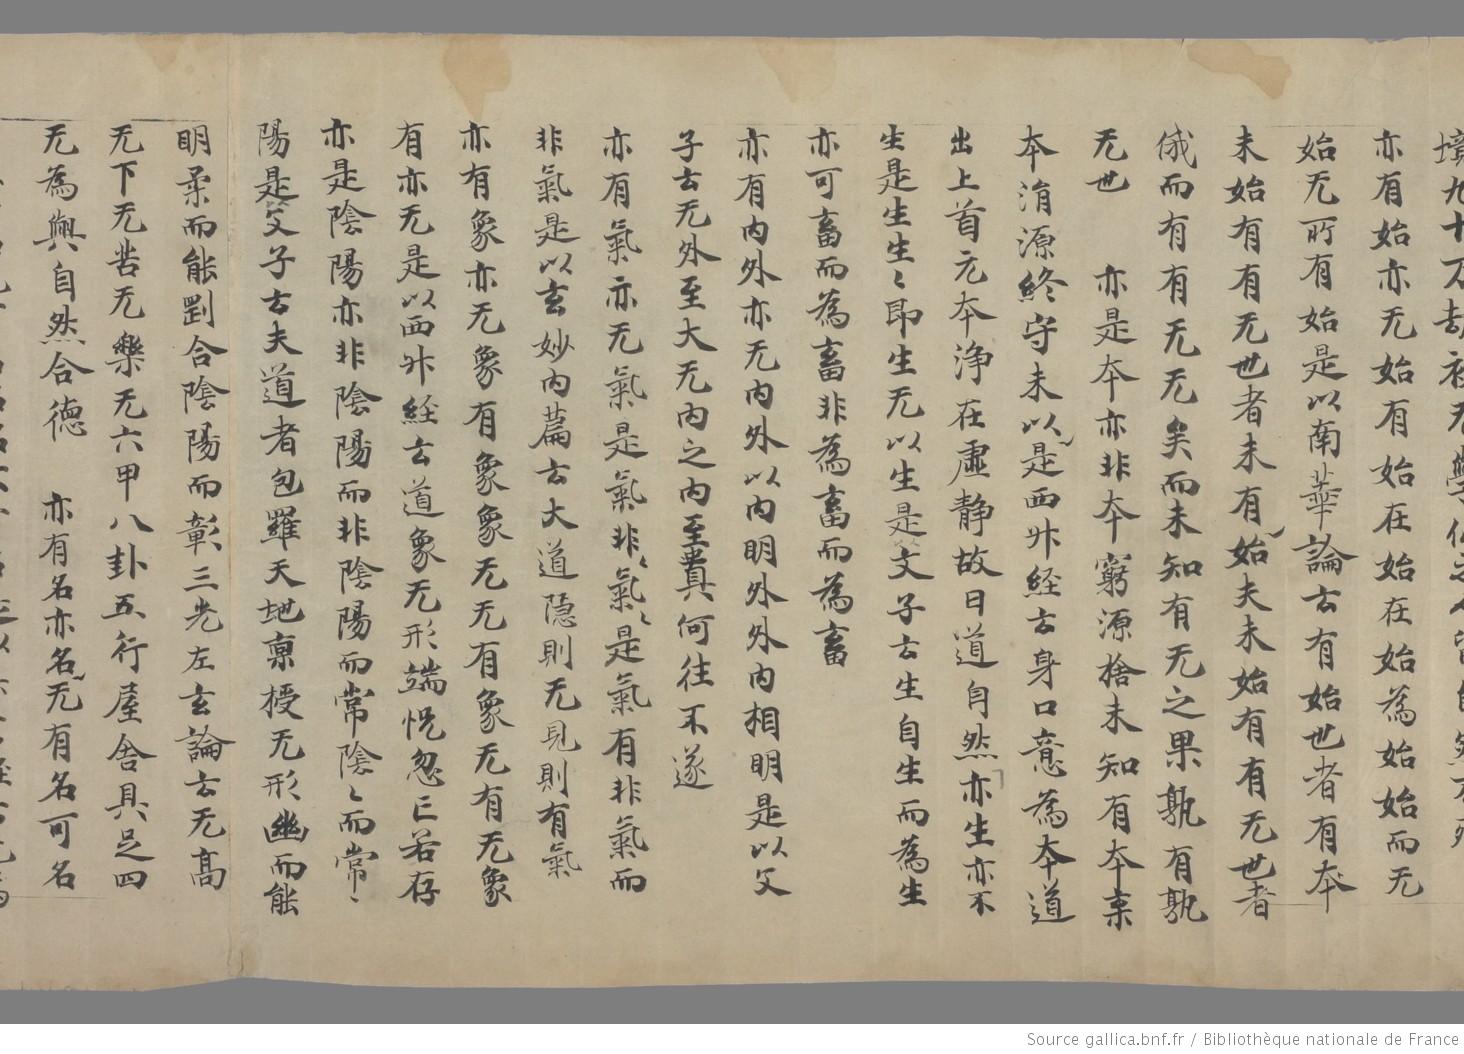 亦有始亦无始有始在始在始為始始而无
始无所有始是以南華論云有始世者有本
未始有有无世者未有始夫未始有有无世者
俄而有有无无矣而未知有无之果孰有孰
无世　亦是本亦非本窮源捨未知有本来
本湏源終守未以是西昇経云身口意為本道
出上首元本浄在虚静故曰道自然亦生亦不
生是生生〻即生无以生是文子云生自生而為生
亦可畜而為畜非為畜而為畜
亦有内外亦无内外以内明外外内相明是以文
子云无外至大无内之内至貴何往不遂
亦有氣亦无氣是氣非〻氣〻是氣有非氣而
非氣是以玄妙内篇云大道隠則无見則有氣
亦有象亦无象有象象无无有象无有无象
有亦无是以西昇経云道象无形端怳忽亡若存
亦是陰陽亦非陰陽而非陰陽而常陰〻而常〻
陽是文子云夫道者包羅天地禀授无形幽而能
明柔而能剛合陰陽而彰三光左玄論云无髙
无下无苦无樂无六甲八卦五行屋舎具足四
无為與自然合德　亦有名亦名无有名可名
Source gallica.bnf.fr / Bibliothèque nationale de France